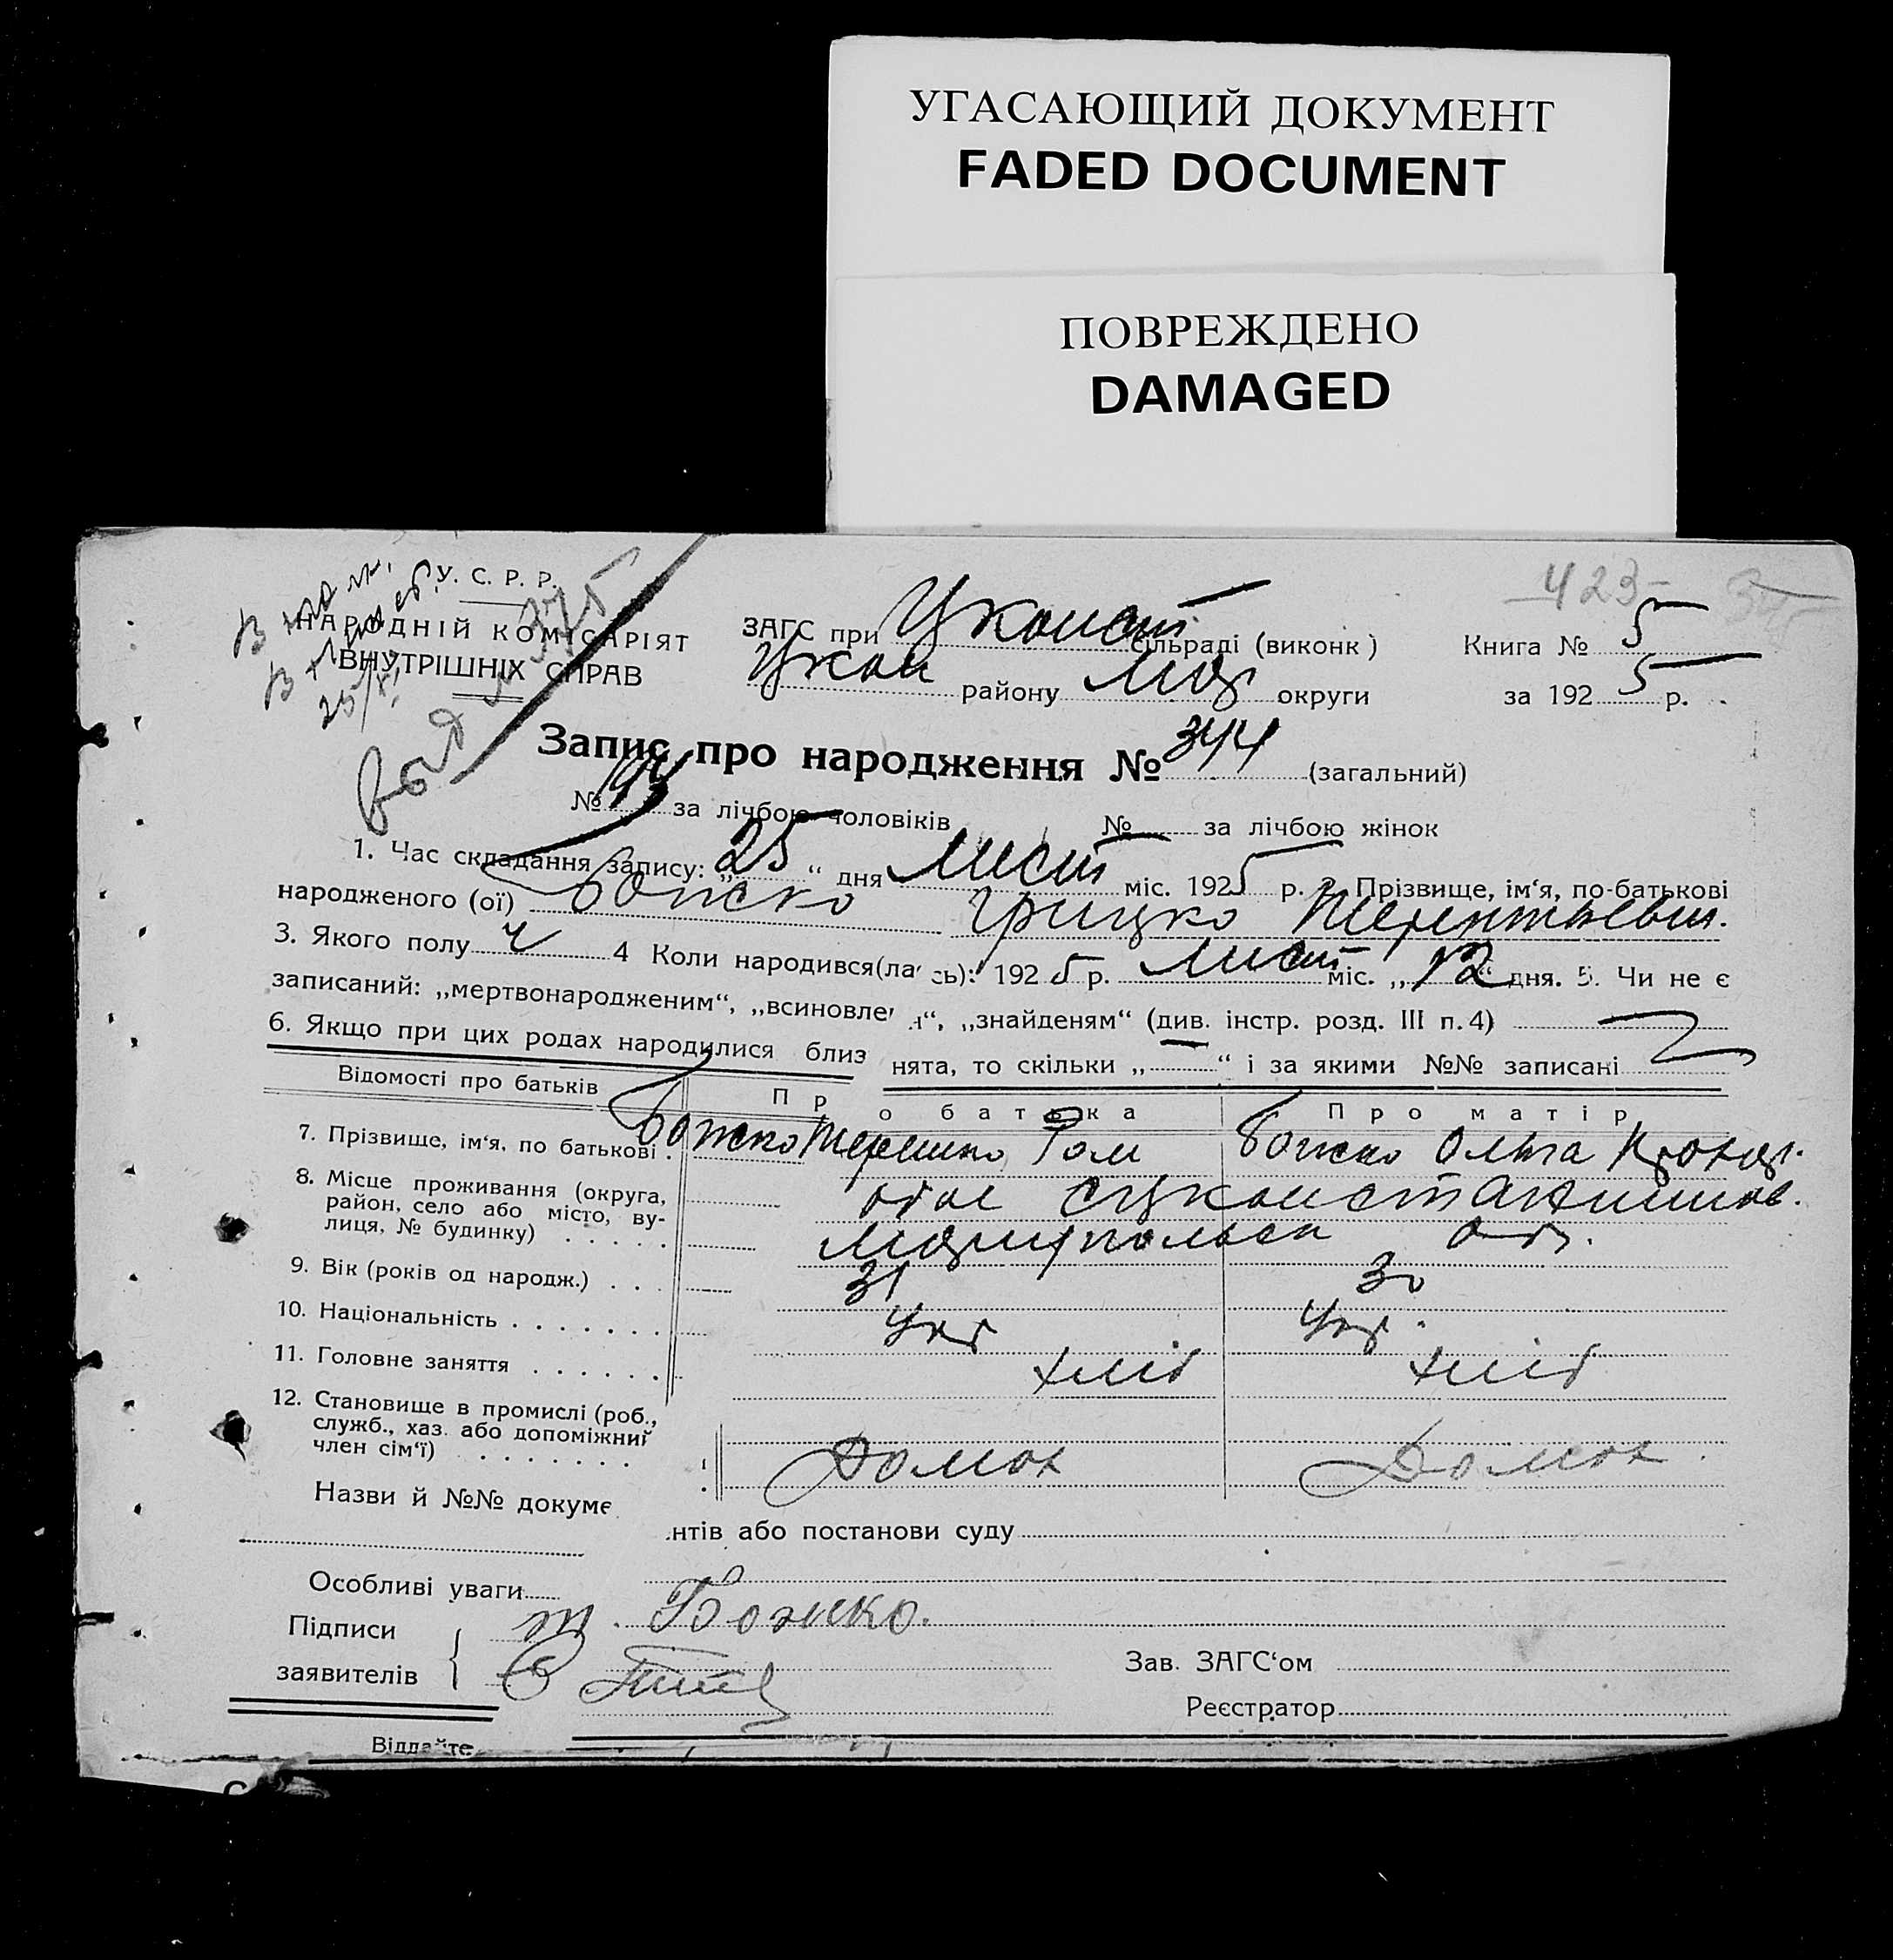 УГАСАЮЩИЙ ДОКУМЕНТ
FADED DOCUMENT
ПОВРЕЖДЕНО
DAMAGED
423
У. С. Р. Р.
НАРОДНІЙ КОМІСАРІЯТ
ВНУТРІШНІХ СПРАВ
ЗАГС при Уконст сільраді (виконк) Книга № 5
Укон району Мар округи за 1925 р.
Запис про народження № 344 (загальний)
№ за лічбою чоловіків № за лічбою жінок
1. Час складання запису: „25“ дня Лист міс. 1925 р. 2. Прізвище, ім‘я, по-батькові
народженого (ої) Божко Грицко Терентьевич.
3. Якого полу ч 4 Коли народився(лась): 1925 р. Лист міс. „12“ дня. 5. Чи не є
записаний: „мертвонародженим“, „всиновле н“, „знайденям“ (див. інстр. розд. III п. 4)
6. Якщо при цих родах народилися близ нята, то скільки „—“ і за якими №№ записані
Відомості про батьків Про батька Про матір
7. Прізвище, ім‘я, по батькові. Божко Терешко Ром Божко Ольга
8. Місце проживання (округа,
район, село або місто, ву-
лиця, № будинку)
Мариупольск
9. Вік (років од народж.) 31 30
10. Національність Укр Укр.
11. Головне заняття хліб хліб
12. Становище в промислі (роб.,
служб., хаз. або допоміжний
член сім‘ї) Домох Домох.
Назви й №№ докуме нтів або постанови суду
Особливі уваги
Підписи
заявителів
т. Божко.
Зав. ЗАГС‘ом
Реєстратор
Віддайте